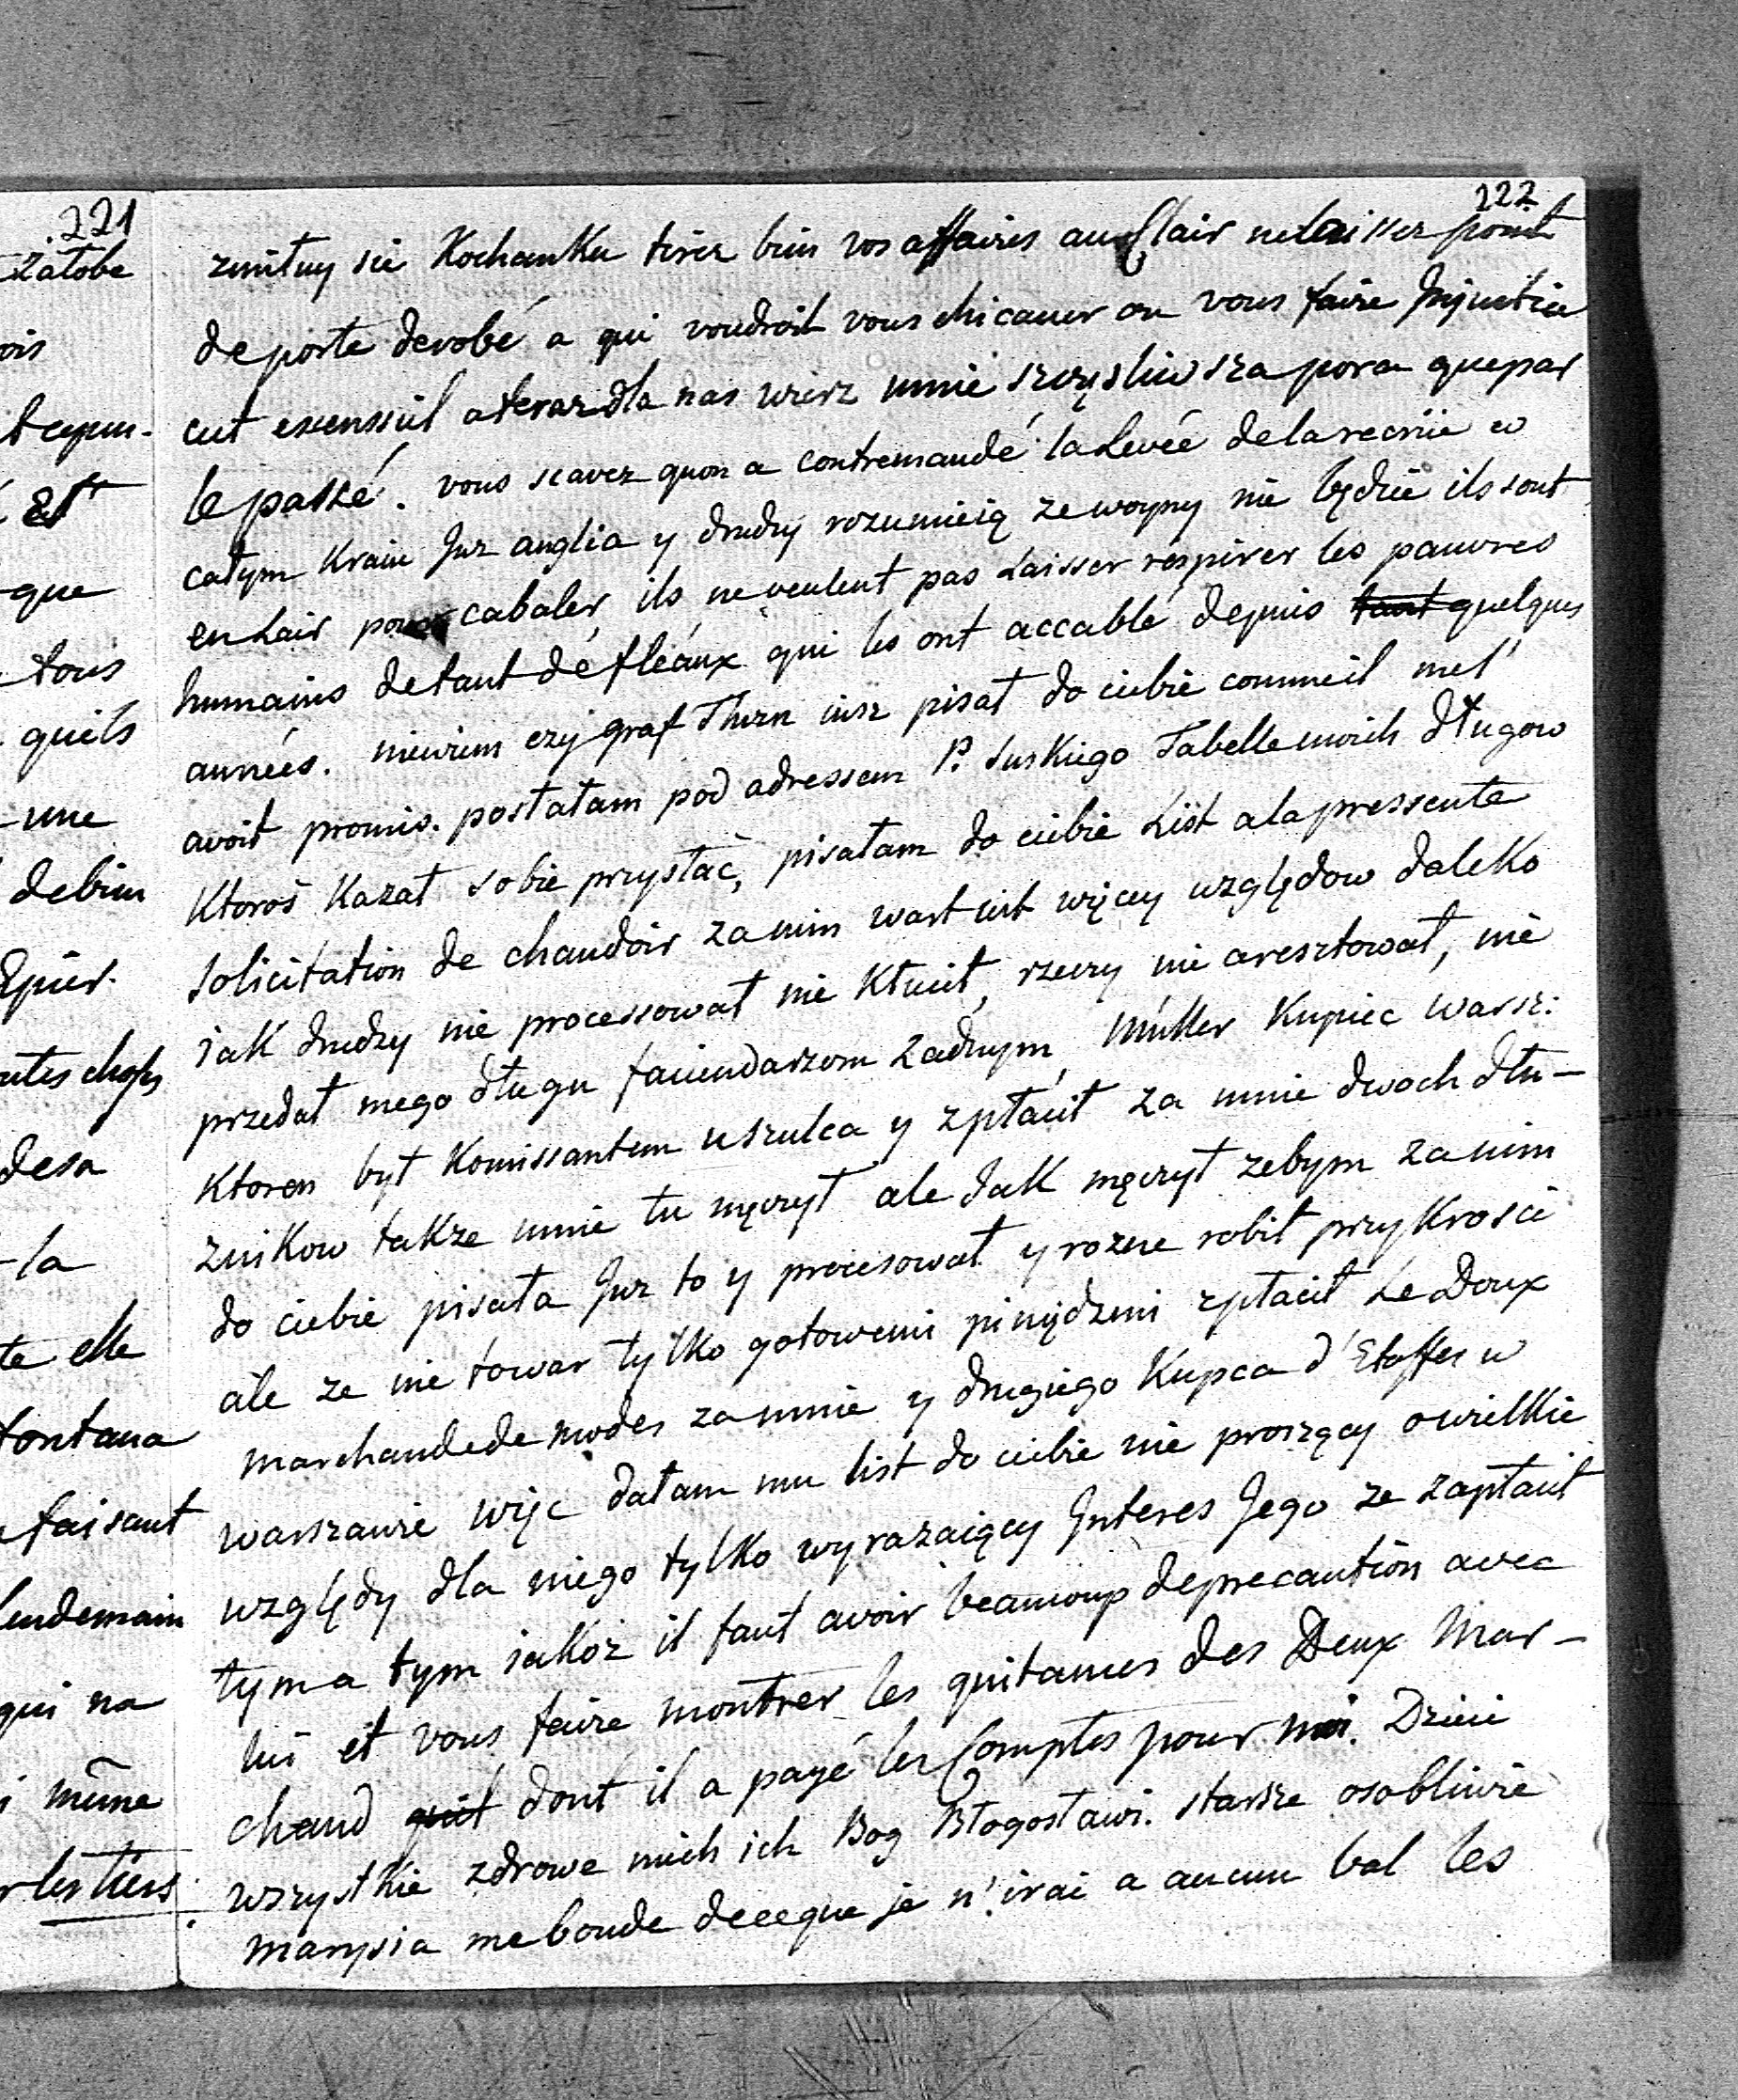 221
żałobe
ois
t cepen-
est
que
tous
quils
une
debien
Epier.
desa
la
te elle
fontana
faisant
lendemain
qui na
même
les tiers
222
zmiłuy sie Kochanku tirez bien vos affaires au Clair nelaissez point
deporte derobé a qui voudroit vous chicaner ou vous faire Injustice
cest essenssiel a teraz dla nas wierz mnie szczęsliwsza pora quepar
le passé. vous scavez quon a contremandé la Levée delarecrüe w
całym Kraiu Juz anglia y drudzy rozumieią ze woyny nie będzie ils sont
en Lair pour cabaler, ils ne veulent pas Laisser respirer les pauvres
humains detant dé fléaux qui les ont accablé depuis tant quelques
années. niewiem czy graf Thurn iusz pisał do ciebie comme il mel'
avoit promis. posłałam pod adressem P. Suskiego Tabelle moich długow
Ktoroś Kazał sobie przysłać, pisałam do ciebie List ala pressente
Solicitation de chaudoir za nim wart iest więcey względow daleko
iak drudzy nie processował nie Kłucił, rzeczy nie aresztował, nie
przedał mego długu faciendarzom żadnym, Müller Kupiec Warsz:
Ktoren był Komissantem u szulca y zpłacił za mnie dwoch dłu-
znikow takze mnie tu męczył ale Jak męczył zebym za nim
do ciebie pisała Juz to y procesował y rozne robił przykrosci
ale ze nie towar tylko gotowemi pinędzmi zpłacił Le Doux
marchandede modes za mnie y drugiego Kupca d'Etoffes w
warszawie więc dałam mu list do ciebie nie proszący o wielkie
względy dla niego tylko wyrazaiący Interes Jego ze zapłacił
tym a tym iakoż il faut avoir beaucoup deprecaution avec
lui et vous faire montrer les quitances des Deux Mar-
chand quil dont il a payé les Comptes pour moi. Dzieci
wszystkie zdrowe niech ich Bog Błogosławi. starsze osobliwie
marysia me boude deceque je n'irai a aucun bal les